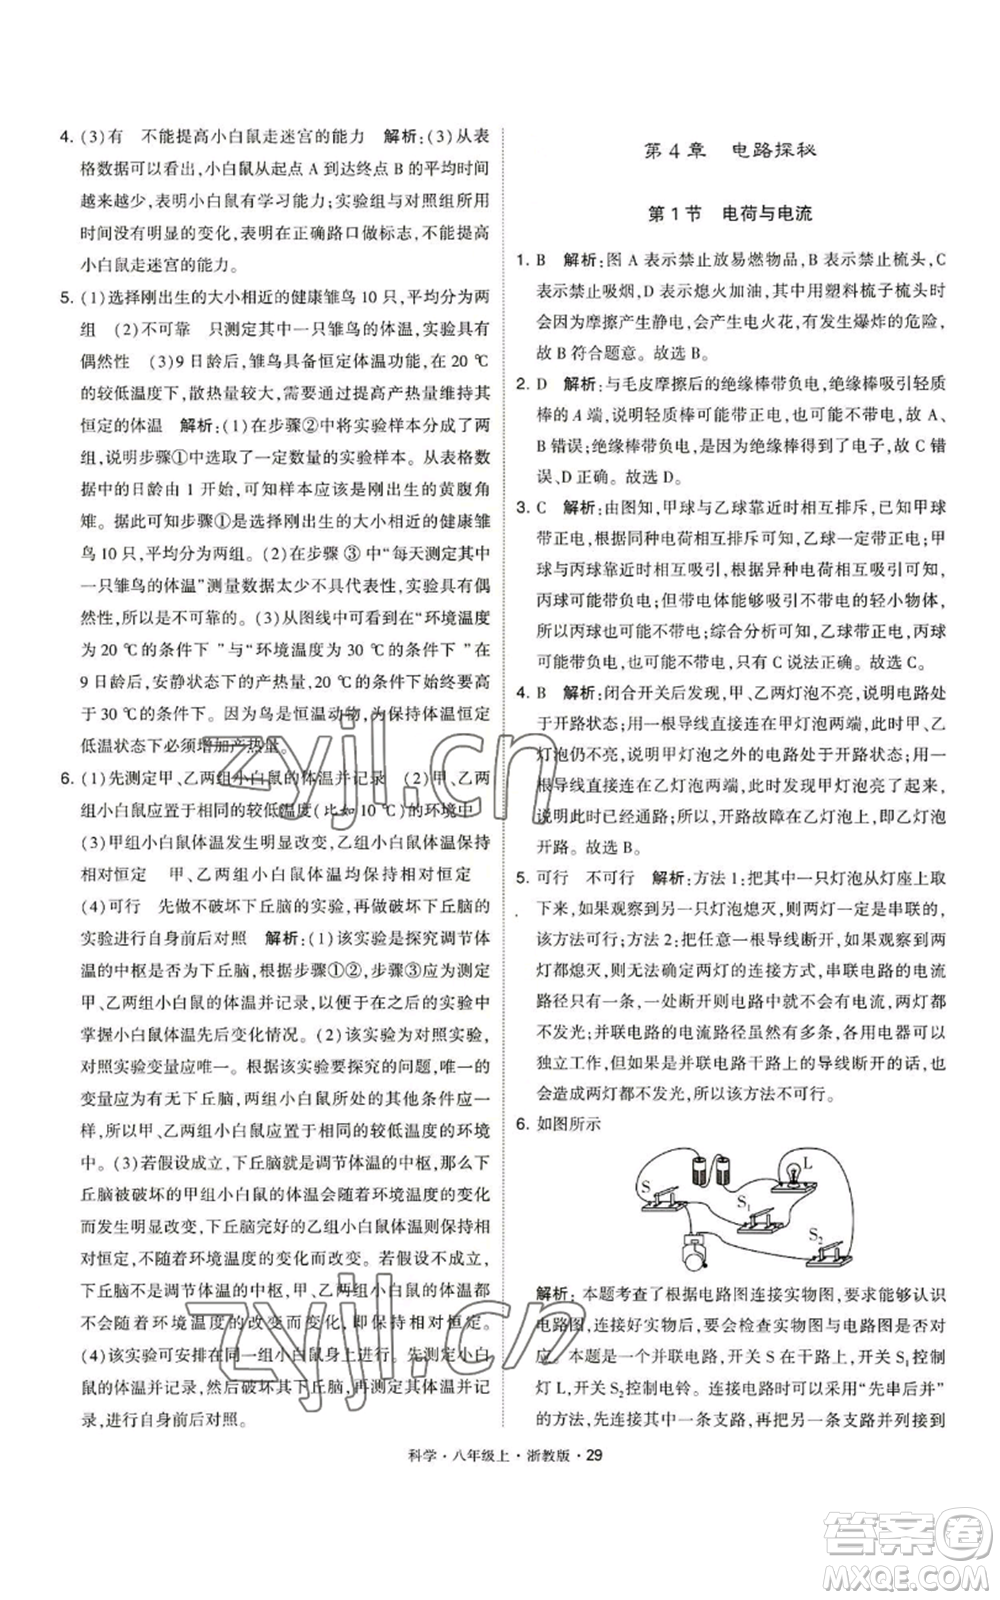 4. (3)有　不能提高小白鼠走迷宫的能力　解析:(3)从表
格数据可以看出,小白鼠从起点 A 到达终点 B 的平均时间
越来越少,表明小白鼠有学习能力;实验组与对照组所用
时间没有明显的变化,表明在正确路口做标志,不能提高
小白鼠走迷宫的能力。
5. (1)选择刚出生的大小相近的健康雏鸟 10 只,平均分为两
组　(2)不可靠　只测定其中一只雏鸟的体温,实验具有
偶然性　(3)9 日龄后,雏鸟具备恒定体温功能,在 20 ℃
的较低温度下,散热量较大,需要通过提高产热量维持其
恒定的体温　解析:(1)在步骤②中将实验样本分成了两
组,说明步骤①中选取了一定数量的实验样本。从表格数
据中的日龄由 1 开始,可知样本应该是刚出生的黄腹角
雉。据此可知步骤①是选择刚出生的大小相近的健康雏
鸟 10 只,平均分为两组。(2)在步骤 ③ 中“每天测定其中
一只雏鸟的体温”测量数据太少不具代表性,实验具有偶
然性,所以是不可靠的。(3)从图线中可看到在“环境温度
为 20 ℃ 的条件下 ”与“环境温度为 30 ℃ 的条件下”相比,
9 日龄后,安静状态下的产热量,20 ℃的条件下始终要
高于 30 ℃ 的条件下。因为鸟是恒温动物,为保持体温恒定
低温状态下必须增加产热量。
6. (1)先测定甲、乙两组小白鼠的体温并记录　(2)甲、乙两
组小白鼠应置于相同的较低温度(比如 10 ℃)的环境中
(3)甲组小白鼠体温发生明显改变,乙组小白鼠体温保持
相对恒定　甲、乙两组小白鼠体温均保持相对恒定
(4)可行　先做不破坏下丘脑的实验,再做破坏下丘脑的
实验进行自身前后对照　解析:(1)该实验是探究调节体
温的中枢是否为下丘脑,根据步骤①②,此步骤应为测定
甲、乙两组小白鼠的体温并记录,以便于在之后的实验中
掌握小白鼠体温先后变化情况。(2)该实验为对照实验,
对照实验变量应唯一。根据该实验要探究的问题,唯一的
变量应为下丘脑,两组小白鼠所处的其他条件应相同,
所以甲、乙两组小白鼠应置于相同的较低温度的环境
中。(3)若假设成立,下丘脑就是调节体温的中枢,下丘
脑被破坏的甲组小白鼠的体温会随着环境温度的变化
而发生明显改变,下丘脑完好的乙组小白鼠体温则保持
相对恒定,不随着环境温度的变化而变化。若假设不成立,
下丘脑不是调节体温的中枢,甲、乙两组小白鼠的体温都
不会随着环境温度的改变而变化,即都保持相对恒定。
(4)该实验可安排在同一组小白鼠身上进行。先测定小白
鼠的体温并记录,然后破坏其下丘脑,再测定其体温并记
录,进行自身前后对照。
第 4 章　电路探秘
第 1 节　电荷与电流
1. B　解析:图 A 表示禁止放易燃物品,B 表示禁止梳头,C
表示禁止吸烟,D 表示熄火加油,其中用塑料梳子梳头时
会因为摩擦产生静电,会产生电火花,有发生爆炸的危险,
故 B 符合题意。故选 B。
2. D　解析:与毛皮摩擦后的绝缘棒带负电,绝缘棒吸引轻质
棒的 A 端,说明轻质棒可能带正电,可能不带电,故 A、
B 错误;绝缘棒带负电,是因为绝缘棒得到了电子,故 C 错
误、D 正确。故选 D。
3. C　解析:由图知,甲球与乙球靠近时相互排斥,甲球
带正电,根据同种电荷相互排斥,乙球一定带正电;甲
球与丙球靠近时相互吸引,根据异种电荷相互吸引,
丙球可能带负电;根据带电体能吸引不带电的轻小物体,
所以丙球也可能不带电;综合分析可知,乙球带正电,丙球
可能带负电,也可能不带电,只有 C 说法正确。故选 C。
4. B　解析:闭合开关后发现,甲、乙两灯泡不亮,说明电路处
于开路状态;用一根导线直接连在甲灯泡两端,甲灯、乙
灯仍不亮,说明甲灯泡之外的电路处于开路状态;用一根
导线直接连在乙灯泡两端,发现这时甲灯泡亮了起来,说
明电路已经形成通路;所以,开路故障在乙灯泡上,即乙灯泡
开路。故选 B。
5. 可行　不可行　解析:方法 1:把其中一只灯泡从灯座上取
下来,如果观察到另一只灯泡熄灭,则两灯一定是串联的,
该方法可行;方法 2:把任意一根导线断开,如果观察到两
灯都熄灭,则无法确定两灯的连接方式,串联电路的电流
路径只有一条,一处断开则电路中就不会有电流,两灯都
不发光;并联电路的电流路径虽然有多条,各用电器可以
独立工作,但如果是并联电路干路上的导线断开的话,也
会造成两灯都不发光,所以该方法不可行。
6. 如图所示
L
S
S₁
S₂
解析:本题考查了根据电路图连接实物图,要求能够认识
电路图,连接好实物后,要会检查实物图与电路图是否对
应。本题是一个并联电路,开关 S 在干路上,开关 S₁控制
灯 L,开关 S₂控制电铃。连接电路时可以采用“先串后并”
的方法,先连接其中一条支路,再把另一条支路并列接到
科学·八年级上·浙教版·29
zyjl.cn
zyjl.cn
答案圈
MXQE.COM